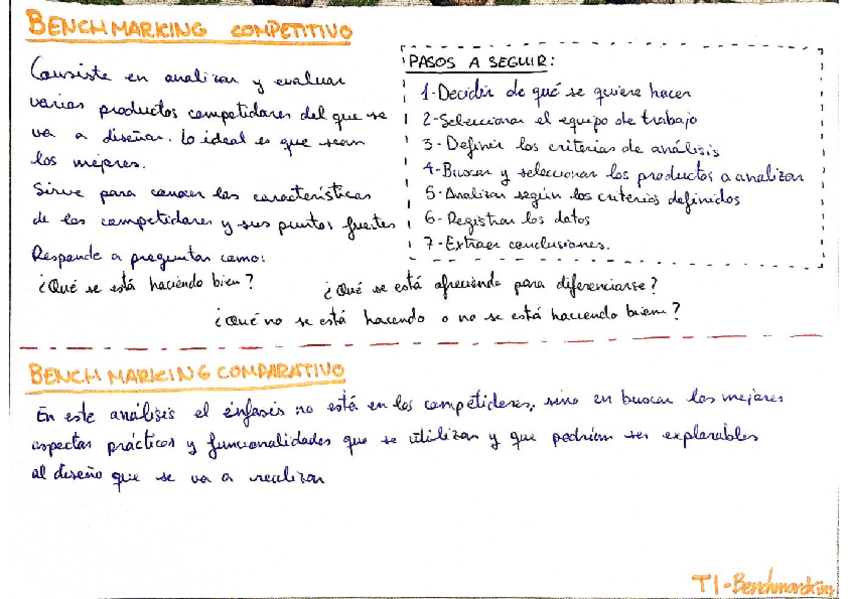 BENCHMARKING COMPETITIVO
Consiste en analizar y evaluar
varios productos competidores del que se
va a diseñar. Lo ideal es que sean
los mejores.
Sirve para conocer las características
de los competidores y sus puntos fuertes
Responde a preguntas como:
¿Qué se está haciendo bien?
¿Qué se está ofreciendo para diferenciarse?
¿Qué no se está haciendo o no se está haciendo bien?
PASOS A SEGUIR:
1-Decidir de qué se quiere hacer
2-Seleccionar el equipo de trabajo
3-Definir los criterios de análisis
4-Buscar y seleccionar los productos a analizar
5-Analizar según los criterios definidos
6-Registrar los datos
7-Extraer conclusiones.
BENCHMARKING COMPARATIVO
En este análisis el énfasis no está en los competidores, sino en buscar los mejores
aspectos prácticos y funcionalidades que se utilizan y que podrían ser explorables
al diseño que se va a realizar
T1-Benchmarking